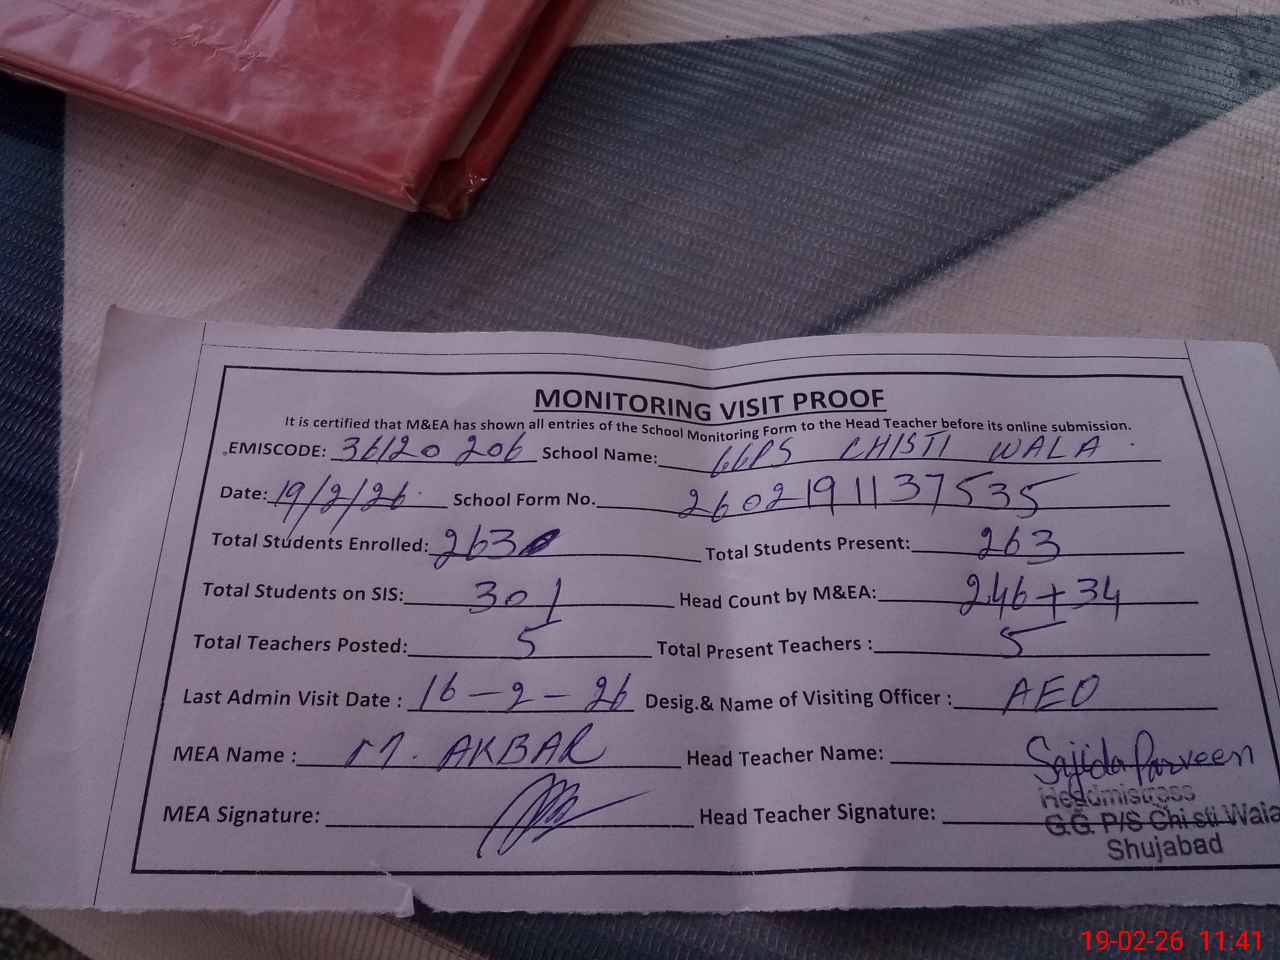 MONITORING VISIT PROOF
It is certified that M&EA has shown all entries of the School Monitoring Form to the Head Teacher before its online submission.
EMISCODE: 36120206 School Name: GGPS CHISTI WALA
Date: 19/2/26 School Form No. 2602191137535
Total Students Enrolled: 263 Total Students Present: 263
Total Students on SIS: 301 Head Count by M&EA: 246+34
Total Teachers Posted: 5 Total Present Teachers : 5
Last Admin Visit Date : 16-2-26 Desig.& Name of Visiting Officer : AEO
MEA Name : M. AKBAR Head Teacher Name: Sajida Parveen
MEA Signature: Head Teacher Signature:
Headmistress
G.G P/S Chisti Wala
Shujabad
19-02-26 11:41